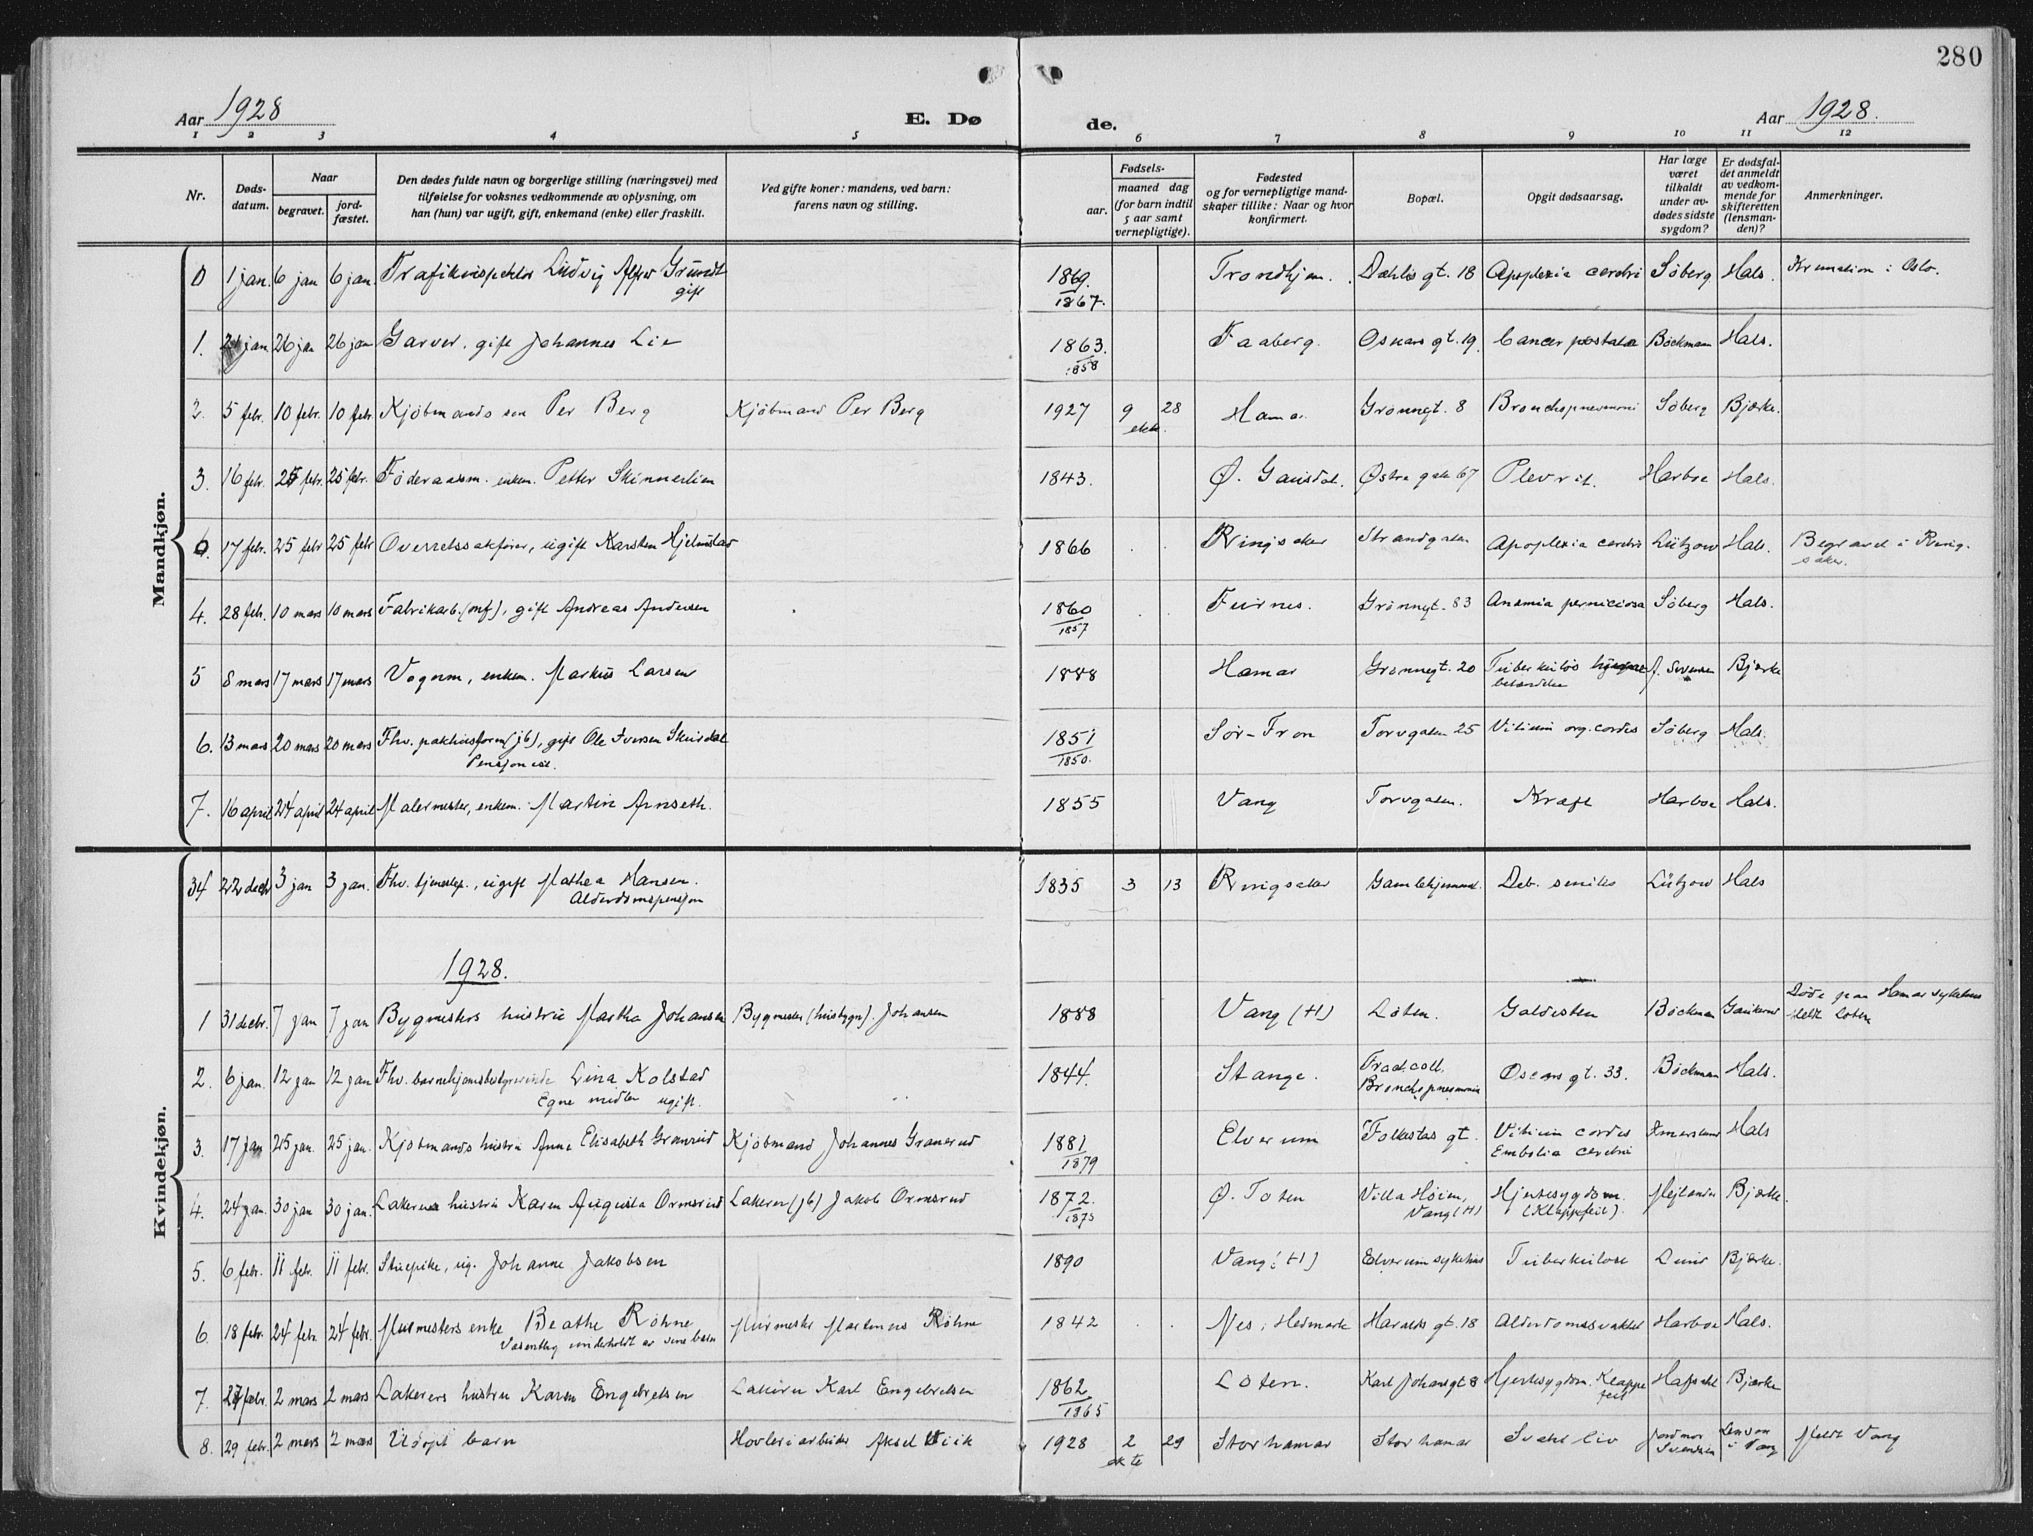 280
Aar 1928
E. Dø
de.
Aar 1928.
1 2 3 4 5 6 7 8 9 10 11 12
Nr.
Døds-
datum.
Naar
begravet.
jord-
fæstet.
Den dødes fulde navn og borgerlige stilling (næringsvei) med
tilføielse for voksnes vedkommende av oplysning, om
han (hun) var ugift, gift, enkemand (enke) eller fraskilt.
Ved gifte koner: mandens, ved barn:
farens navn og stilling.
Fødsels-
aar.
maaned dag
(for barn indtil
5 aar samt
vernepligtige).
Fødested
og for vernepligtige mand-
skaper tillike: Naar og hvor
konfirmert.
Bopæl.
Opgit dødsaarsag.
Har læge
været
tilkaldt
under av-
dødes sidste
sygdom?
Er dødsfal-
det anmeldt
av vedkom-
mende for
skifteretten
(lensman-
den)?
Anmerkninger.
Mandkjøn.
0 1 jan. 6 jan 6 jan. Trafikinspektør Ludvig Alfred Grundt gift 1869. 1867. Trondhjem. Dæhlis gt. 18 Apoplexia cerebri Søberg Hals. Kremation i Oslo.
1. 21 jan. 26 jan 26 jan Garver, gift Johannes Lie 1863. 1858 Faaberg. Oskars gt. 19. Cancer prostata Bøckmann Hals.
2. 5 febr. 10 febr. 10 febr. Kjøbmands søn Per Berg Kjøbmand Per Berg 1927 9 28 ekte. Hamar Grønnegt. 8 Bronchopneumoni Søberg Bjærke.
3. 16 febr. 25 febr. 25 febr. Føderaadsm. enkem. Petter Skinnerlien 1843. Ø. Gausdal. Østre gate 67 Plevrit. Harboe Hals.
0. 17 febr. 25 febr 25 febr Overretssakfører, ugift Karsten Hjelmstad 1866 Ringsaker Strandgaten Apoplexia cerebri Lützow Hals. Begravet i Ring-
saker.
4. 28 febr. 10 mars 10 mars Fabrikarb. (mf), gift Andreas Andersen 1860 1857 Furnes. Grønnegt. 83 Anæmia perniciosa Søberg Hals.
5 8 mars 17 mars 17 mars Vognm, enkem. Markus Larsen 1888 Hamar Grønnegt. 20 Tuberkuløs betændelse J. Svensen Bjærke
6. 13 mars 20 mars 20 mars Fhv. pakhusform (jb), gift Ole Iversen Skurdal
Pensjonist. 1851 1850. Sør-Fron Torvgaten 25 Vitium org. cordis Søberg Hals.
7. 16 april 24 april 24 april Malermester, enkem. Martin Arnseth. 1855 Vang Torvgaten. Kræft Harboe Hals.
Kvindekjøn.
34 22 decbr 3 jan 3 jan. Fhv. tjenestep., ugift Mathea Hansen.
Alderdomspensjon 1835 3 13 Ringsaker Gamlehjemmet. Deb. senilis Lützow Hals
1928.
1 31 decbr. 7 jan 7 jan Bygmesters hustru Martha Johansen Bygmester (husbygn). Johansen 1888 Vang (H) Løten. Galdesten Bøckman Gaukerud Døde paa Hamar sykehus
Meldt Løten
2. 6 jan. 12 jan 12 jan Fhv. barnehjemsbestyrerinde Lina Kolstad
Egne midler ugift. 1844. Stange. Fract. coll.
Bronchopneumonia Oscars gt. 33. Bøckman Hals.
3. 17 jan 25 jan. 25 jan. Kjøbmands hustru Anne Elisabeth Granerud Kjøbmand Johannes Granerud 1881 1879 Elverum Folkestads gt. Vitium cordis
Embolia cerebri Amerslund Hals
4. 24 jan. 30 jan 30 jan. Lakerers hustru Karen Augusta Ormsrud Lakerer (jb) Jakob Ormsrud 1872. 1873 Ø. Toten Villa Høiem,
Vang (H) Hjertesygdom.
(Klappefeil). Mejlænder Bjærke.
5. 6 febr. 11 febr. 11 febr. Stuepike, ug. Johanne Jakobsen 1890 Vang (H) Elverum sykehus Tuberkulose Lund Bjærke.
6 18 febr. 24 febr. 24 febr. Murmesters enke Beathe Røhne
Væsentlig underholdt av sine barn Murmester Martinus Røhne 1842 Nes, Hedmark Haralds gt. 18 Alderdomssvakhet Harboe Hals.
7. 27 febr. 2 mars 2 mars Lakerers hustru Karen Engebretsen Lakerer Karl Engebretsen 1862 1865 Løten. Karl Johans gt 8 Hjertesygdom. Klappe
feil Hafsahl Bjærke
8. 29 febr. 2 mars 2 mars Udøpt barn Høvleriarbeider Aksel Viik 1928 2 29 ekte Storhamar Storhamar Svakt liv Jordmor
Svendsen Lensm
i Vang Meldt Vang